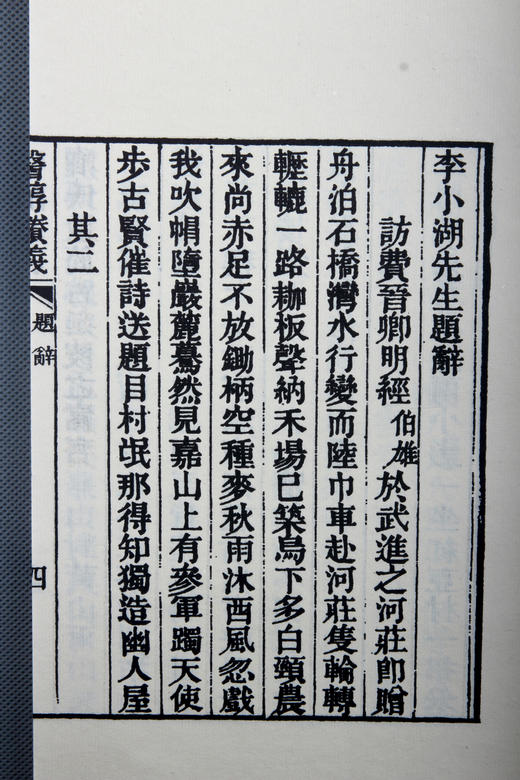 李小湖先生題辭
訪費晉卿明經伯雄於武進之河莊即贈
舟泊石橋灣水行變而陸巾車赴河莊隻輪轉
轣轆一路耞板聲納禾場已築烏下多白頸農
來尚赤足不放鋤柄空種麥秋雨沐西風忽戲
我吹帽墮巖麓驀然見嘉山上有參軍躅天使
步古賢催詩送題目村氓那得知獨造幽人屋
其二
醫醇賸義
題辭
四